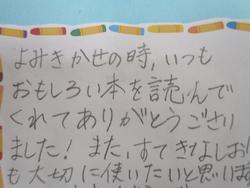 よみきかせの時,いつも
おもしろい本を読んで
くれてありがとうござい
ました!また,すてきなしおり
も大切に使いたいと思いま